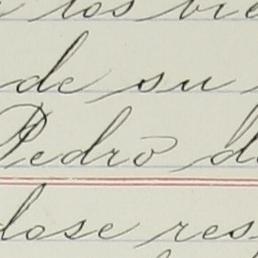 los
de su
Pedro
dose res